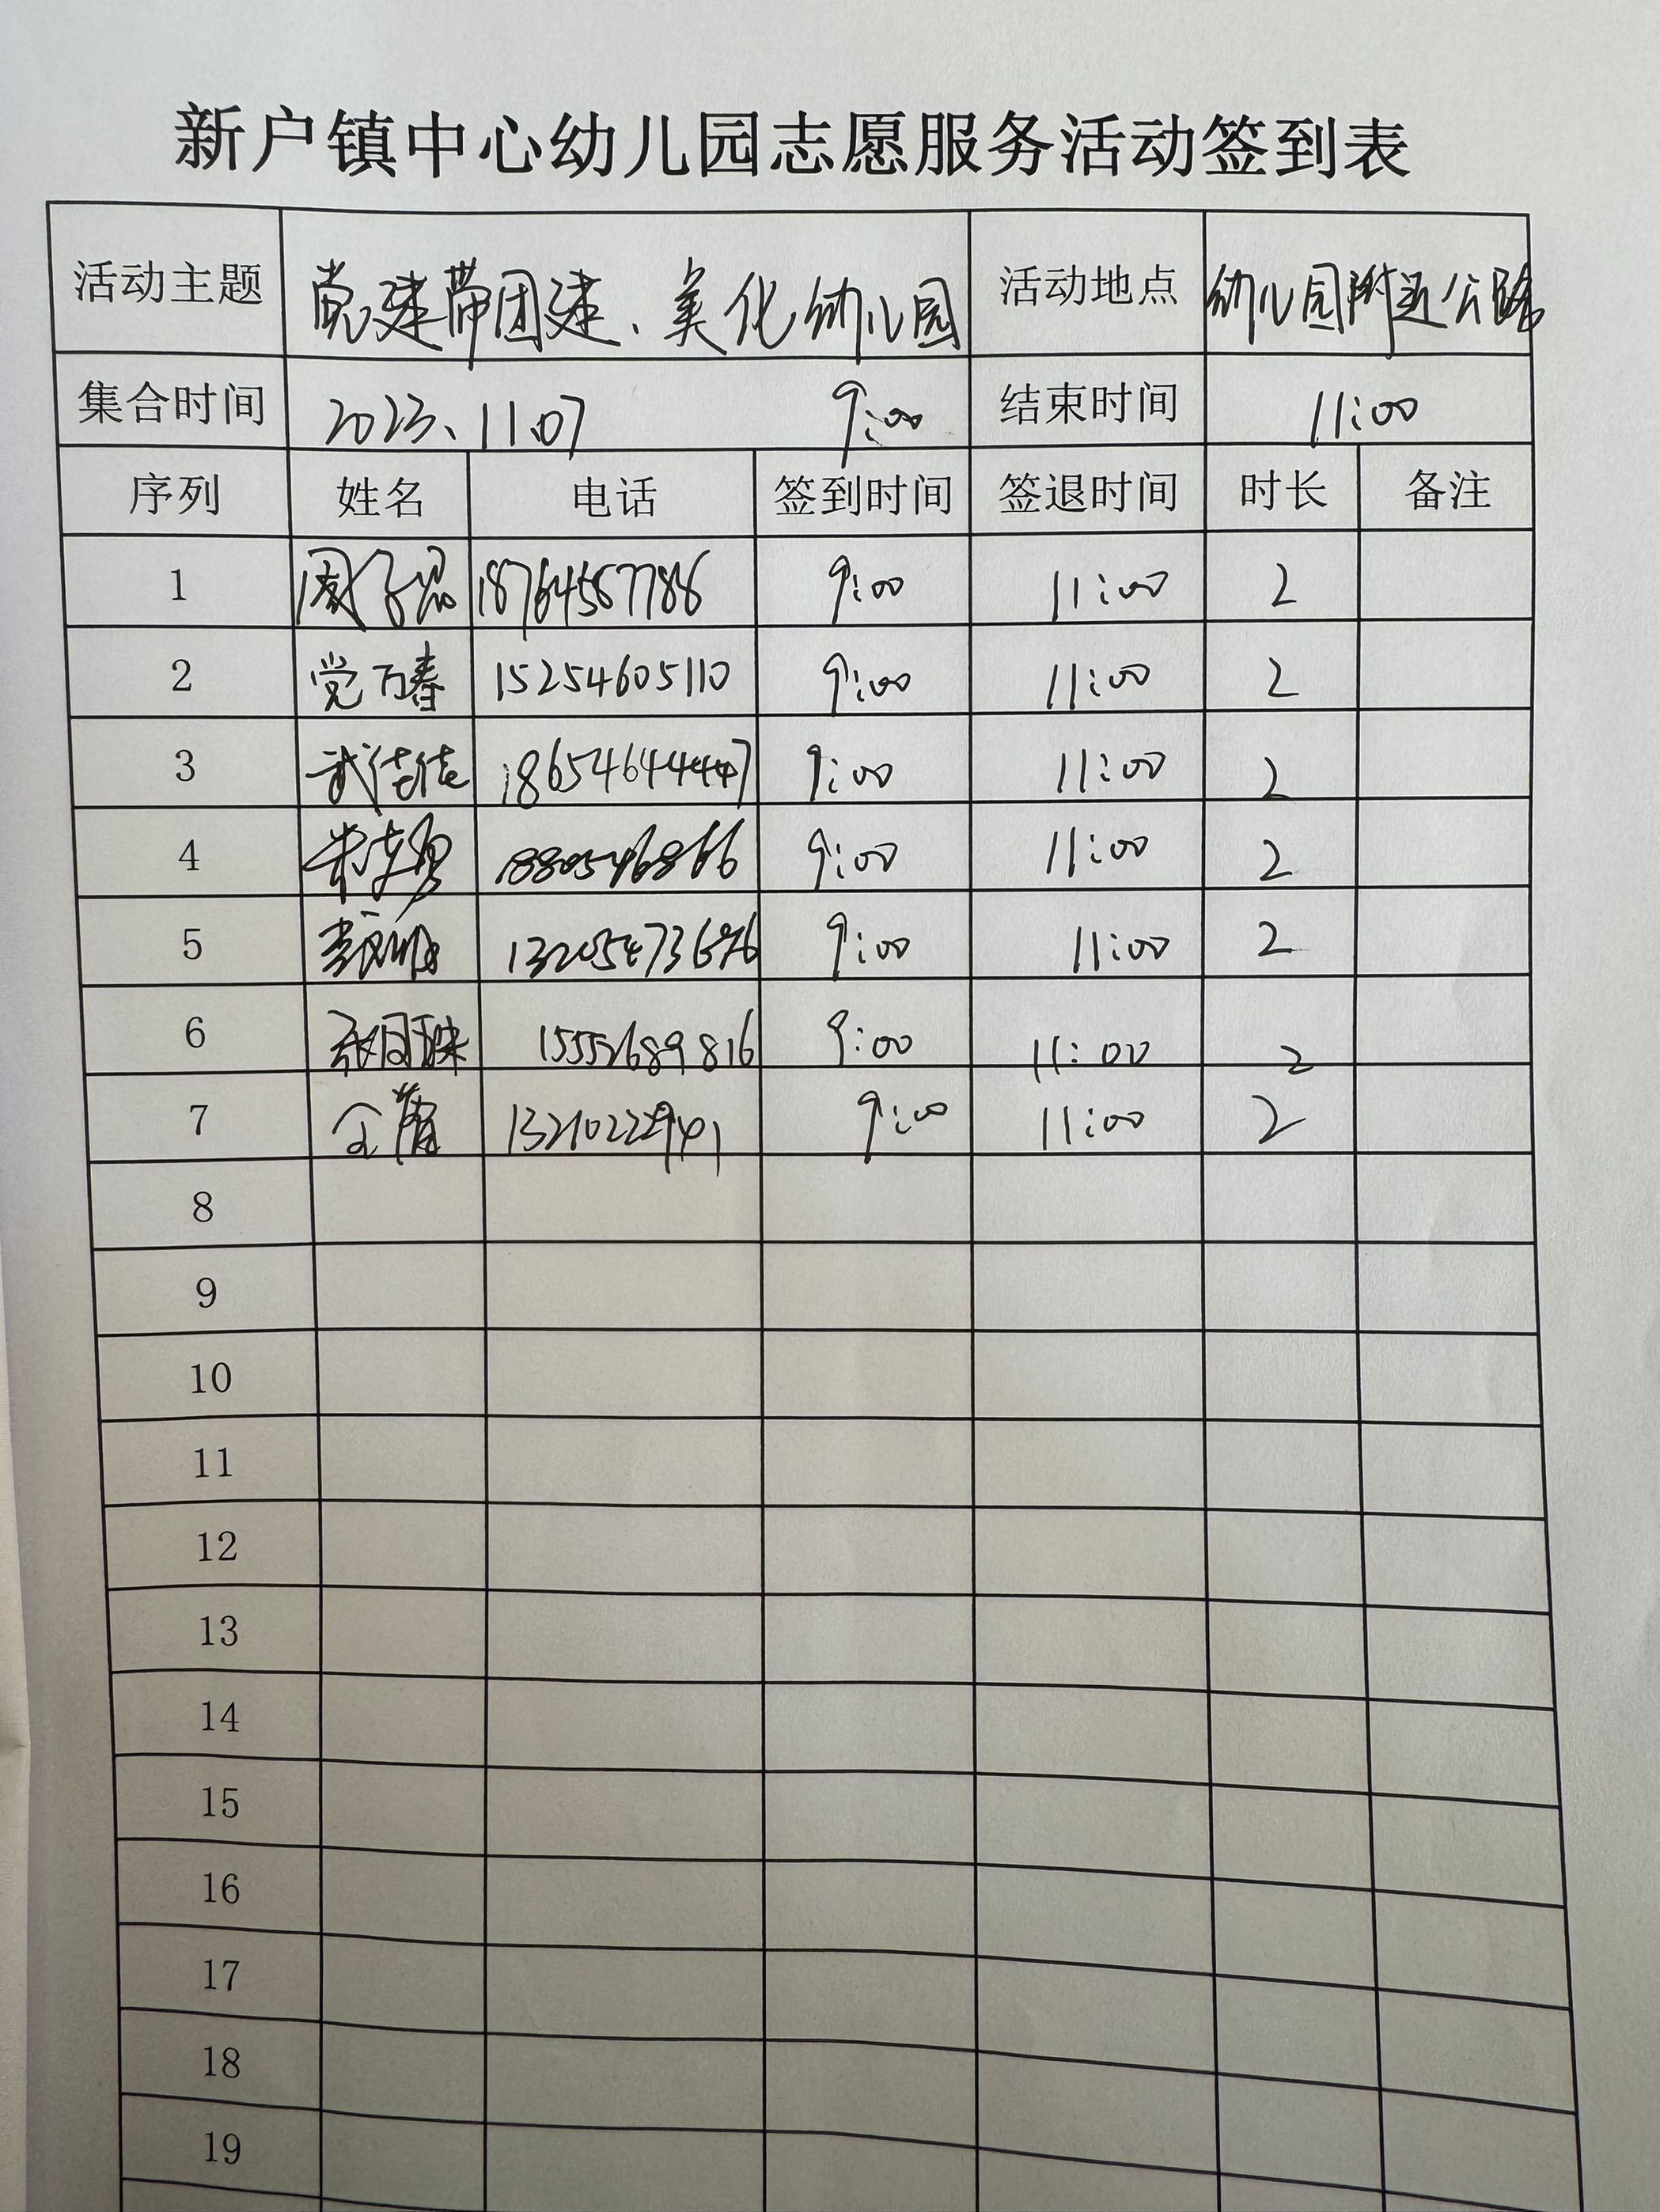 新户镇中心幼儿园志愿服务活动签到表
活动主题 党建带团建、美化幼儿园 活动地点 幼儿园附近公路
集合时间 2023、11.07 9:00 结束时间 11:00
序列 姓名 电话 签到时间 签退时间 时长 备注
1 周子 18764567788 9:00 11:00 2
2 党万春 15254605110 9:00 11:00 2
3 武佳佳 18654644447 9:00 11:00 2
4 9:00 11:00 2
5 9:00 11:00 2
6 15552689816 9:00 11:00 2
7 仝 9:00 11:00 2
8
9
10
11
12
13
14
15
16
17
18
19